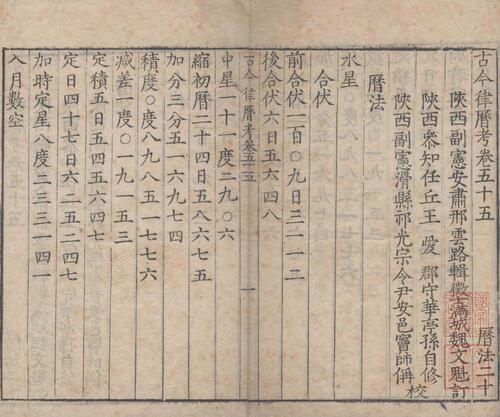 古今律曆考卷五十五 曆法二十
陝西副憲安肅邢雲路輯徵士滿城魏文魁訂
陝西叅知任丘王 愛 郡守華亭孫自修
陝西副憲滑縣祁光宗令尹安邑竇師偁
校
曆法
水星
合伏
前合伏一百〇九日三二一二
後合伏六日五四八六
古今律曆考卷五十五 一
中星一十一度二九〇六
縮初曆二十四日五八六七五
加分三分五一六九七四
積度〇度八九八五一七七六
減差一度〇一九一五三
定積五日五四五六四七
定日四十七日六二五二四七
加時定星八度三三三一四
入月數空